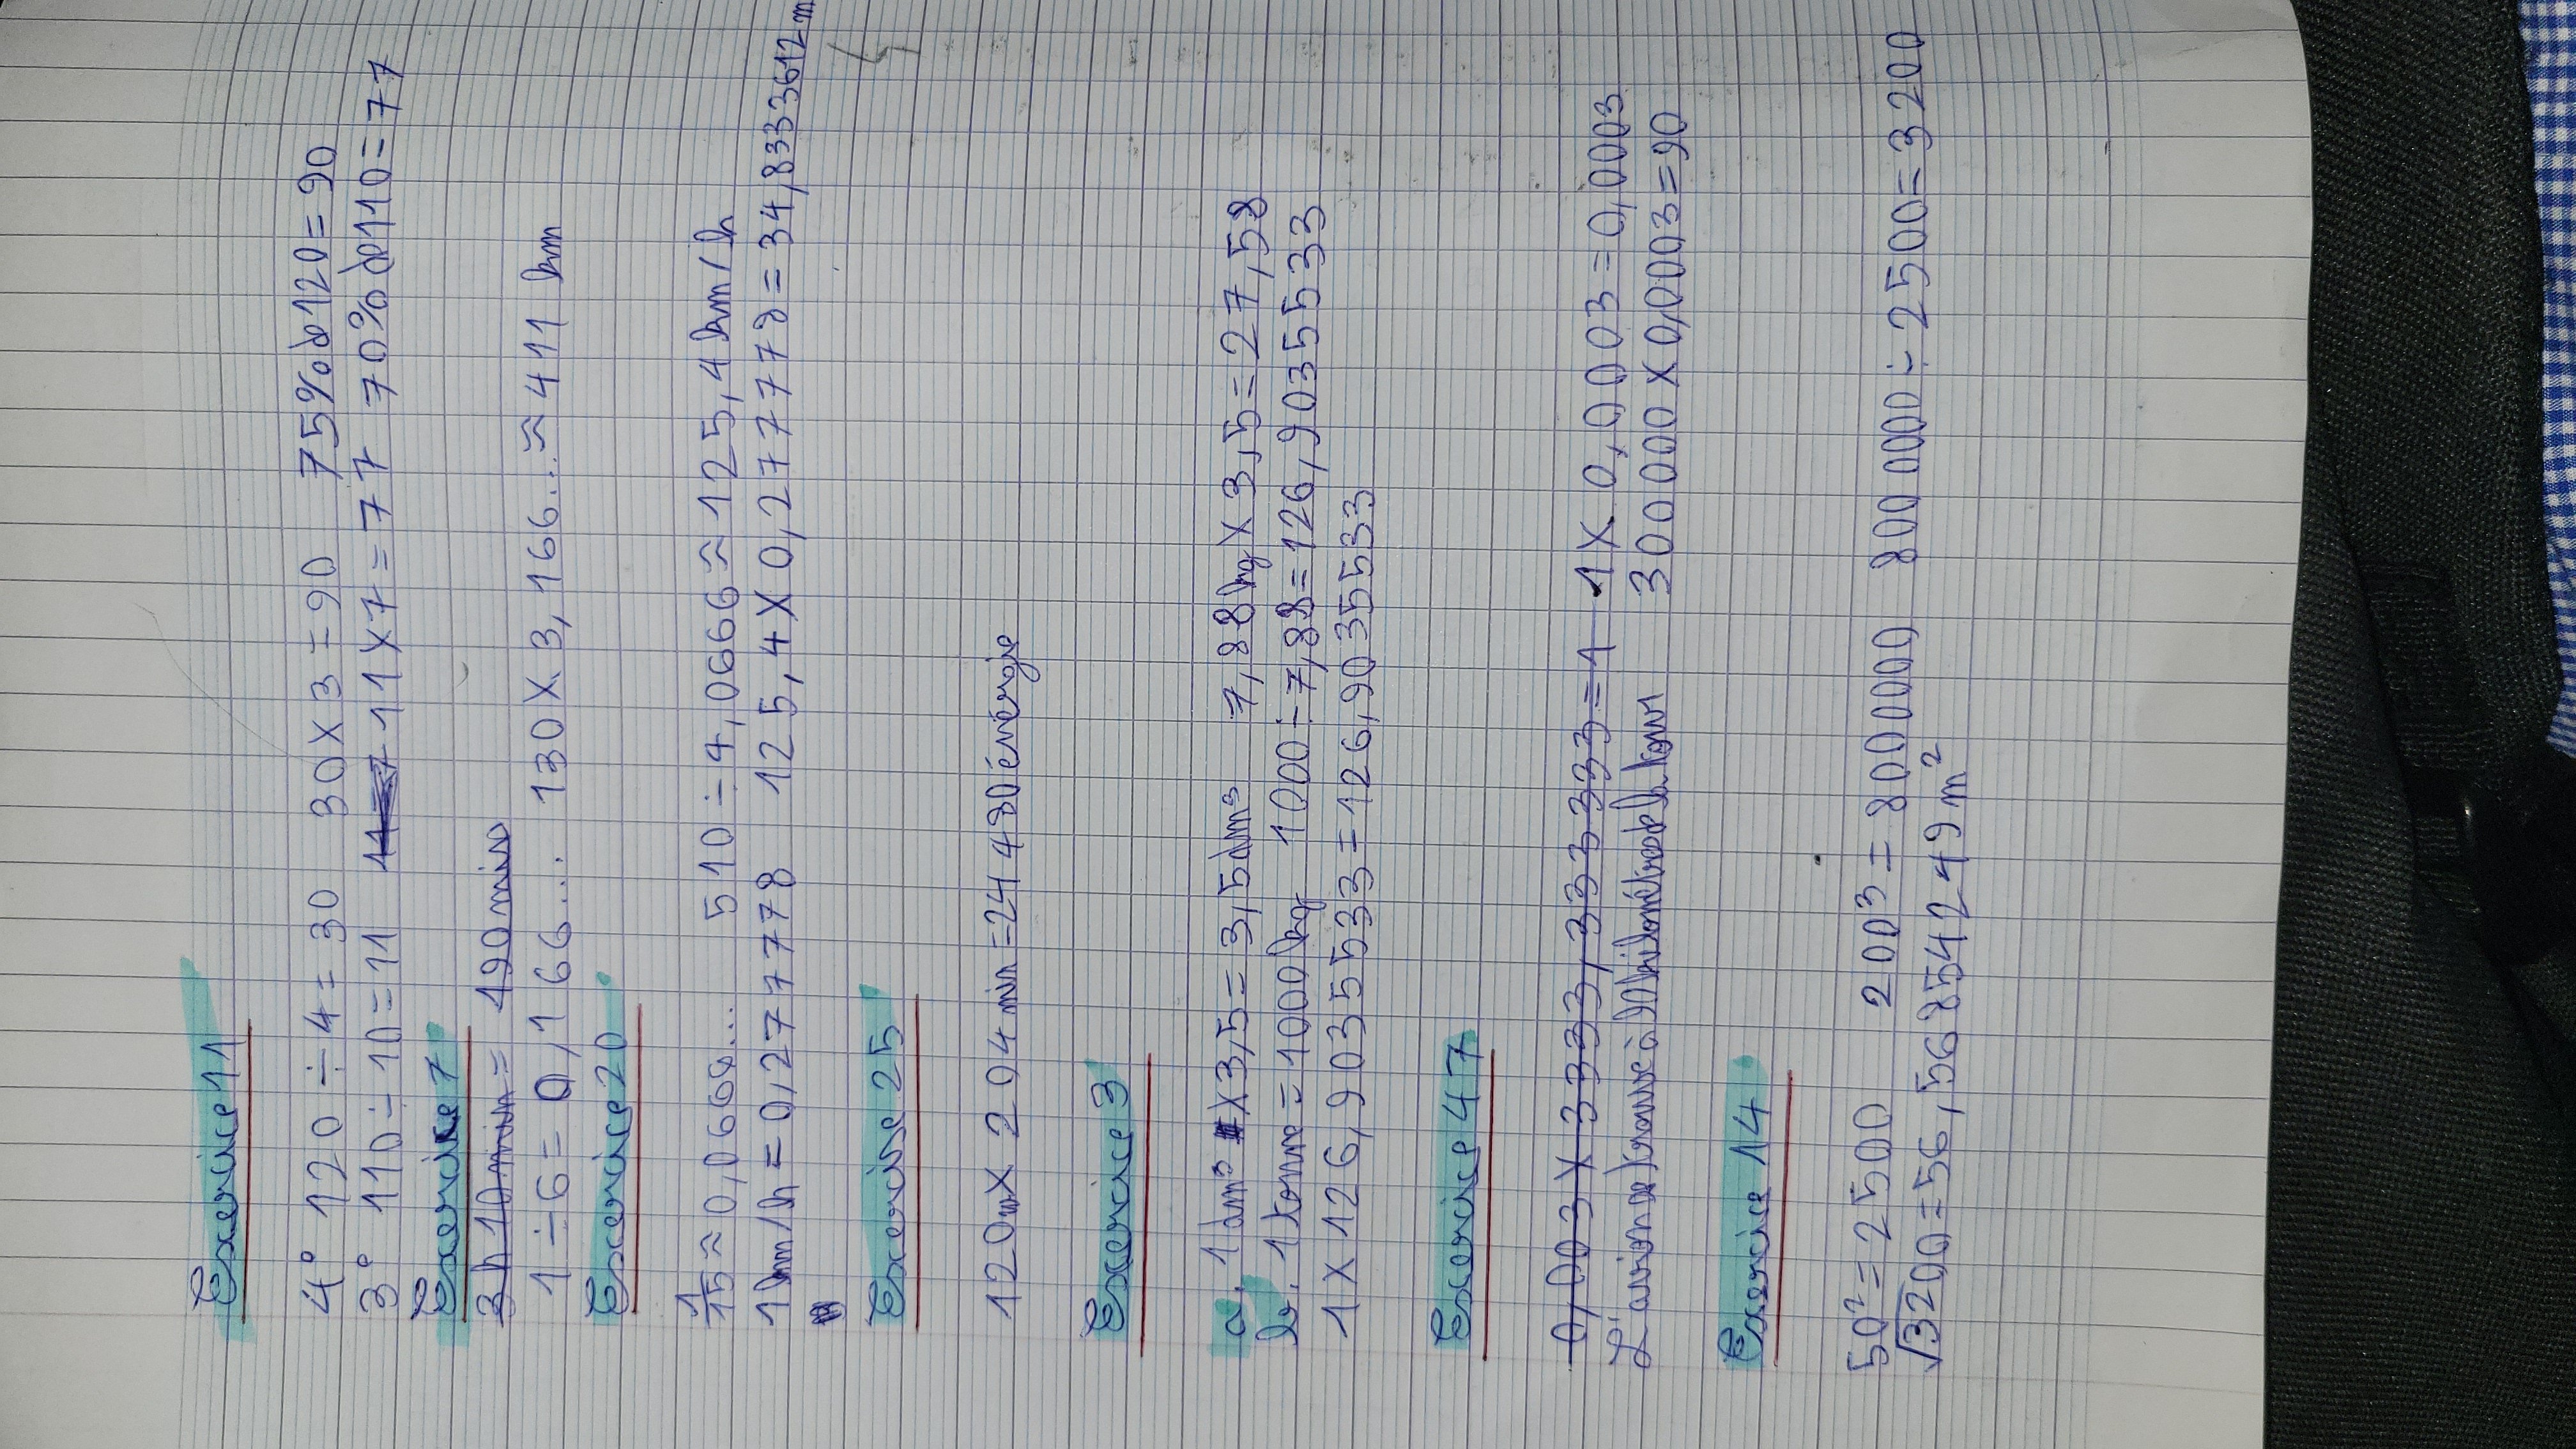 Exercice 11
4° 120 ÷ 4 = 30 30 x 3 = 90 75% de 120 = 90
3° 110 ÷ 10 = 11 11 x 7 = 77 70% de 110 = 77
Exercice 7
3 h 10 min = 190 min
1 ÷ 6 = 0,166... 130 x 3,166... ≈ 411 km
Exercice 20
1/15 ≈ 0,0666.... 510 ÷ 4,0666 ≈ 125,4 km/h
1 km/h = 0,277778 125,4 x 0,277778 = 34,8333612 m
Exercice 25
120 w x 204 min = 24 480 énérgie
Exercice 3
a. 1 dm³ x 3,5 = 3,5 dm³ 7,88 kg x 3,5 = 27,58
b. 1 tonne = 1000 kg 1000 ÷ 7,88 = 126,9035533
1 x 126,9035533 = 126,9035533
Exercice 47
0,003 x 3333,33333333 = 1 1 x 0,0003 = 0,0003
L'avion se trouve à 90 kilomètre de la tour 300000 x 0,0003 = 90
Exercice 14
50² = 2500 200³ = 8000000 8000000 ÷ 2500 = 3200
√3200 = 56,56854249 m²